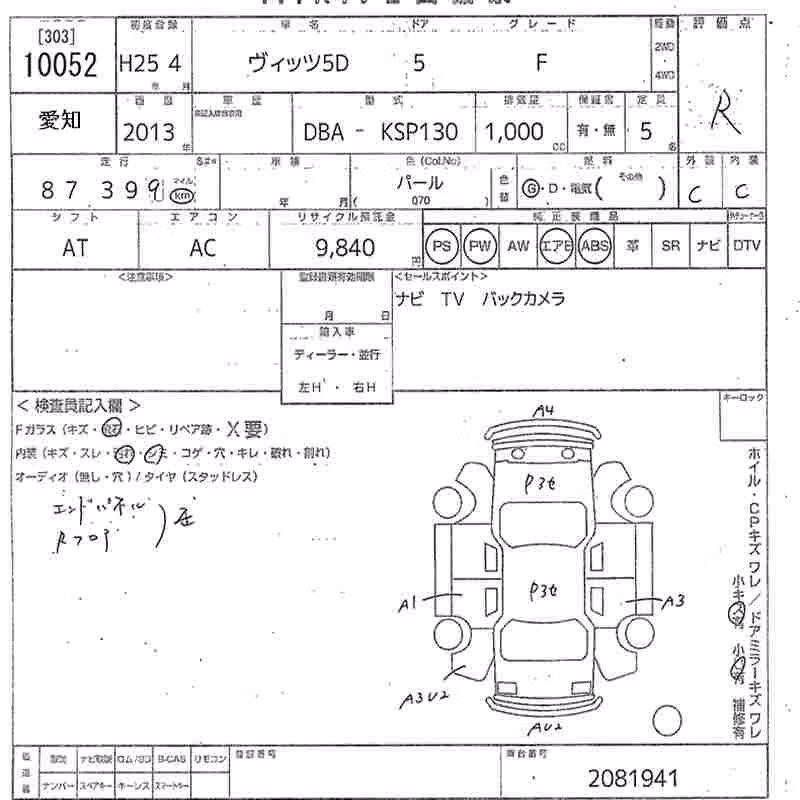 [303]
10052
初度登録
H25 4
年 月
車名 ドア グレード
ヴィッツ5D 5 F
駆動
2WD
・
4WD
評価点
R
愛知
2013
年
車歴
型式
DBA - KSP130
排気量
1,000
cc
保証書
有・無
定員
5
名
走行
87 399
マイル
km
車検
年 月
色(Col.No)
パール
( 070 )
色替
燃料
G・D・電気( その他 )
外装 内装
C C
シフト
AT
エアコン
AC
リサイクル預託金
9,840
円
純正装備品
PS PW AW エアB ABS 革 SR ナビ DTV
<注意事項>
登録書類有効期限
月 日
<セールスポイント>
ナビ TV バックカメラ
輸入車
ディーラー・並行
左H ・ 右H
< 検査員記入欄 >
キーロック
Fガラス(キズ・飛石・ヒビ・リペア跡・X要)
内装(キズ・スレ・汚れ・シミ・コゲ・穴・キレ・破れ・割れ)
オーディオ(無し・穴)/タイヤ(スタッドレス)
エンドパネル
Rフロア
A4
P3セ
P3セ
A1
A3
A3U2
AU2
ホイル・CPキズワレ/ドアミラーキズワレ
小キズ有 小凹有 補修有
ナビ取説 ロム/SD B-CAS リモコン
ナンバー スペアキー キーレス スマートキー
登録番号
車台番号
2081941